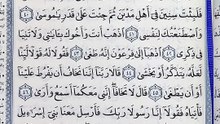 فَلَبِثْتَ سِنِينَ فِىٓ أَهْلِ مَدْيَنَ ثُمَّ جِئْتَ عَلَىٰ قَدَرٍ يَـٰمُوسَىٰ ٤٠
وَٱصْطَنَعْتُكَ لِنَفْسِى ٤١ ٱذْهَبْ أَنتَ وَأَخُوكَ بِـَٔايَـٰتِى وَلَا تَنِيَا
فِى ذِكْرِى ٤٢ ٱذْهَبَآ إِلَىٰ فِرْعَوْنَ إِنَّهُۥ طَغَىٰ ٤٣ فَقُولَا لَهُۥ قَوْلًا لَّيِّنًا
لَّعَلَّهُۥ يَتَذَكَّرُ أَوْ يَخْشَىٰ ٤٤ قَالَا رَبَّنَآ إِنَّنَا نَخَافُ أَن يَفْرُطَ عَلَيْنَآ
أَوْ أَن يَطْغَىٰ ٤٥ قَالَ لَا تَخَافَآ إِنَّنِى مَعَكُمَآ أَسْمَعُ وَأَرَىٰ ٤٦
فَأْتِيَاهُ فَقُولَآ إِنَّا رَسُولَا رَبِّكَ فَأَرْسِلْ مَعَنَا بَنِىٓ إِسْرَٰٓءِيلَ